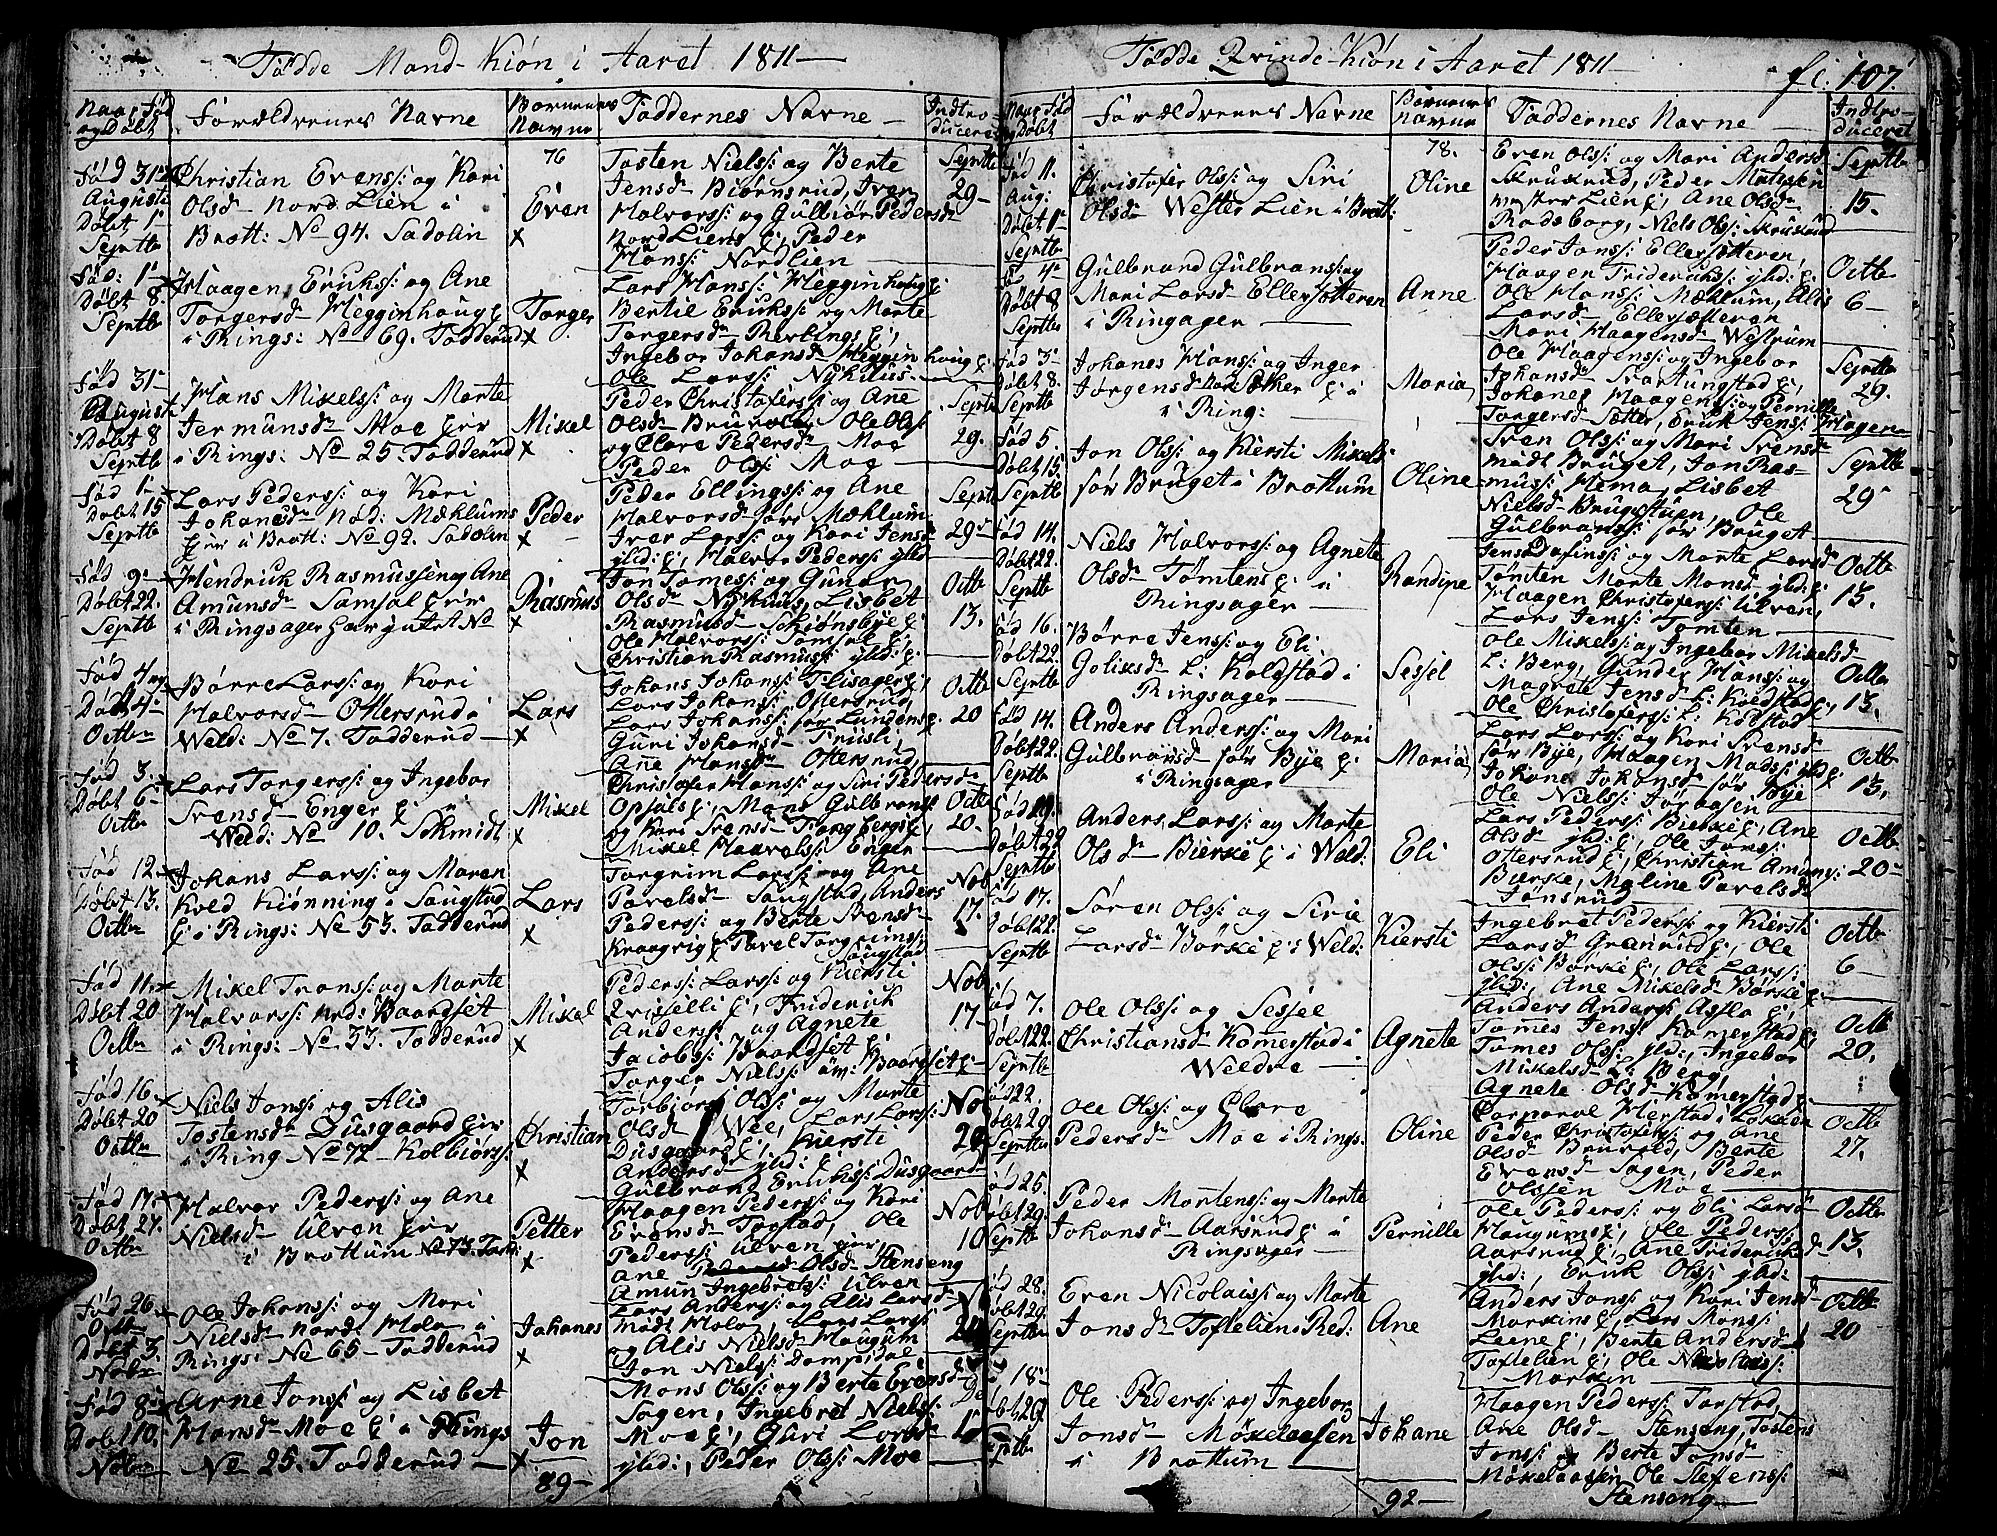 Fødde Mand-Kiøn i Aaret 1811
Naar Fød og Døbt
Forældrenes Navne
Børnenes Navne
Faddernes Navne
Indtroduceret
76
Fød 31te Augusti Døbt 1te Septbr
Christian Evens: og Kari
Olsd Nord Lien i
Brøtt: No 94. Sadolin
Even
x
Tosten Niels: og Berte
Jensd Biørnsrud, Iver
Halvors: og Gulbiør Pedersd
Nord Liens E:, Peder
Hans: Nordlien
Septbr 29
Fød: 1te Døbt 8. Septbr
Haagen Eriks: og Ane
Torgersd Hegginhoug E:
i Rings: No 69. Fodderud
Torger
x
Lars Hans: Hegginhoug E:
Bertil Eriks: og Marte
Torgersd
Ingebor Johansd Hegginhoug E:
Ole Lars: Nykuus
Fød 31te Augusti Døbt 8 Septbr
Hans Mikels: og Marte
Jermunsd Moe Eier
i Rings: No 25. Fodderud
Mikel
x
Peder Christofers: og Ane
Olsd Bruvold, Ole Ols:
og Clare Pedersd Moe
Peder Ols: Moe
Septbr 29.
Fød 1te Døbt 15 Septbr
Lars Peders: og Kari
Johansd Nød: Mæhlums
Eier i Brøtt: No 92. Sadolin
Peder
x
Peder Ellings: og Ane
Halvorsd sør Mæhlum
Iver Lars: og Kari Jensd
ibid: E:, Halvor Peders: ibid
Septbr 29
Fød 9te Døbt 22. Septbr
Hendrick Rasmussen og Ane
Amunsd Samsal Eier
i Ringsager har intet No
Rasmus
x
Jon Tomes: og Gunor
Olsd Nykuus, Lisbet
Rasmusd Schiønsbye E:
Ole Halvors: Samsal E:
Christian Rasmus: ibid: E:
Octbr 13.
Fød 4 og Døbt 4te Octbr
Børre Lars: og Kari
Halvorsd Ottersrud i
Weld: No 7. Fodderud
Lars
x
Johans Johans: Flisager E:
Lars Johans: Ottersrud
Lars Johans: sør Lunden E:
Guri Johansd
Ane Hansd Ottersrud
Octbr 20
Fød 3. Døbt 6 Octbr
Lars Torgers: og Ingebor
Svensd Enger E: i
Weld: No 10. Schmidt
Mikel
x
Christofer Hans: og Siri Pedersd
Opsal E:, Mons Gulbrans:
og Kari Svensd Tangberg E:
Mikel Haavels: Enger
Octbr 20.
Fød 12. Døbt 13. Octbr
Johans Lars: og Maren
Kold Kiønning i Saugstad
E: i Rings: No 53. Fodderud
Lars
x
Torgrim Lars: og Ane
Pavelsd Saugstad, Anders
Peders: og Berte Svensd
Kraagvig E: Pavel Torgrims:
Saugstad
Nobr 17.
Fød 11te Døbt 20 Octbr
Mikel Frans: og Marte
Halvors: Nrd: Baardset
i Rings: No 33. Fodderud
Mikel
x
Peders: Lars: og Kiersti
Qviselli E:, Friderich
Anders: og Agnete
Jacobs: Baardset E:
Torger Niels: øv: Baardset E:
Nobr 17
Fød 16 Døbt 20 Octbr
Niels Jons: og Alis
Tostensd Dusgaard Eier
i Ring No 72 Kolbiørs:
Christian
x
Torbiør Ols: og Marte
Olsd Wee, Lars Lars:
Dusgaard E:, Kiersti
Andersd ibid: E:
Gulbrand Eriks: Dusgaard
Nobr
Fød 17. Døbt 27. Octbr
Halvor Peders: og Ane
Nielsd Ulven Eier
i Brøttum No 73. Fodd:
Petter
x
Haagen Peders: og Kari
Evensd Togstad, Ole
Peders: Ulven Eier,
Ane Olsd Stenseng
Amun Ingebrets: Ulven
Nobr 10
Fød 26. Octbr Døbt 3. Nobr
Ole Johans: og Mari
Nielsd Nord Holm i
Rings: No 65 Fodderud
Johanes
x
Lars Anders: og Alis Larsd
Midt Holm, Lars Lars:
og Alis Nielsd Haugum
Jon Niels: Dampsdal
Fød 8te Døbt 10. Nobr
Arne Jons: og Lisbet
Hansd Moe E: i Rings
No 25. Fodderud
Jon
x
Mons Ols: og Berte Evensd
Sagen, Ingebret Niels:
Moe E:, Guri Larsd
ibid:, Peder Ols: Moe
89
Fødde Qvinde-Kiøn i Aaret 1811
fc. 107.
Naar Fød og Døbt
Forældrenes Navne
Børnenes Navne
Faddernes Navne
Indtroduceret
78.
Fød 11. Aug: Døbt 1te Septbr
Christofer Ols: og Siri
Olsd Wester Lien i Brøtt:
Oline
Even Ols: og Mari Andersd
Skruxrud, Peder Mathisen
Wester Lien E:, Ane Olsd
Rodsborg, Niels Ols: Skruxrud
Septbr 15.
Fød 4te Døbt 8 Septbr
Gulbrand Gulbrans: og
Mari Larsd Ellersætteren
i Ringsager
Anne
Peder Jons: Ellersætteren,
Haagen Frideriks: ibid: E:
Ole Hans: Mæhlum, Alis
Larsd Ellersætteren
Mari Haagensd Westrum
Octbr 6
Fød 3te Døbt 8. Septbr
Johanes Hans: og Inger
Jørgensd E: i
i Ring:
Maria
Ole Haagens: og Ingebor
Johansd Svartungstad E:,
Johanes Haagens: og Pernille
Torgersd Sætter, Erik Jens: Hagen
Septbr 29.
Fød 5. Døbt 15. Septbr
Jon Ols: og Kiersti Mikelsd
sør Bruget i Brøttum
Oline
Sven Ols: og Mari Svensd
Midt Bruget, Jon Ras-
mus: Hema, Lisbet
Nielsd Brugstuen, Ole
Gulbrans: sør Bruget
Septbr 29
Fød 14. Døbt 22. Septbr
Niels Halvors: og Agnete
Olsd Tømtens E: i
Ringsager
Randine
Jens Dafins: og Marte Larsd
Tømten Marte Monsd ibid: E:
Haagen Christofers: Ulven,
Lars Jens: Tomten
Octbr 13.
Fød 16. Døbt 22. Septbr
Børre Jens: og Eli
Goliksd L: Koldstad i
Ringsager
Sesjel
Ole Mikels: og Ingebor Mikelsd
L: Berg, Gunder Hans: og
Magrete Jensd L: Koldstad E:
Ole Christofers: L: Kolstad
Octbr 13.
Fød 14. Døbt 22. Septbr
Anders Anders: og Mari
Gulbransd sør Bye E:
i Ringsager
Maria
Lars Lars: og Kari Svensd
sør Bye, Haagen Mads: ibid E:
Johane Johansd sør Bye
Ole Niels: Føraasen
Octbr 13.
Fød 19. Døbt 22 Septbr
Anders Lars: og Marte
Olsd Bierke E: i Weld:
Eli
Lars Peders: Bierke E:, Ane
Olsd ibid: E:, Ole Jons:
Ottersrud E:, Christian Amuns:
Bierke, Maline Pavelsd
Jønsrud
Octbr 20
Fød 17. Døbt 22. Septbr
Søren Ols: og Sirie
Larsd Børke E: i Weld:
Kiersti
Ingebret Peders: og Kiersti
Larsd Granrud E:, Ole
Ols: Børke E:, Ole Lars:
ibid:, Ane Mikelsd Børke E:
Octbr 6
Fød 7. Døbt 22. Septbr
Ole Ols: og Sesjee
Christiansd Komerstad i
Weldre
Agnete
Anders Anders: Asfla E:
Tomes Jens: Komerstad E:
Tomes Ols: ibid:, Ingebor
Mikelsd L: Berg,
Agnete Olsd Komerstad E:
Octbr 20.
Fød 22. Døbt 29 Septbr
Ole Ols: og Clare
Pedersd Moe i Rings:
Oline
Corporal Herstad i Løkken
Peder Christofers: og Ane
Olsd Bruvold, Berte
Evensd Sagen, Peder
Olssen Moe
Octbr 27.
Fød 26. Døbt 29. Septbr
Peder Mortens: og Marte
Johansd Aarsrud E: i
Ringsager
Pernille
Ole Peders: og Eli Larsd
Haugums E:, Ole Peders:
Aarsrud E:, Ane Frideriksd
ibid:, Erik Ols: ibid:
Octbr 13.
Fød 28. Døbt 29. Septbr
Even Nicolais: og Marte
Jonsd Toftelien i Red:
Ane
Anders Jons: og Kari Jensd
Morkins E:, Lars Mons:
Leene E:, Berte Andersd
Toftelien E:, Ole Nicolais:
Morkin
Octbr 20
18te Døbt 29. Septbr
Ole Peders: og Ingebor
Jonsd Møxelaasen
i Brøttum
Johane
Haagen Peders: Tørstad,
Ane Olsd Stenseng, Tostens
Jons: og Berte Jonsd
Møxelaasen Ole Steffens:
Stenseng
92